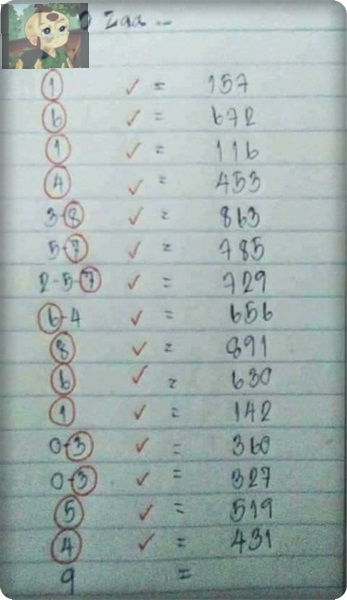 1 ✓ = 157
6 ✓ = 672
1 ✓ = 116
4 ✓ = 453
3-8 ✓ = 863
5-7 ✓ = 785
2-5-7 ✓ = 729
6-4 ✓ = 656
8 ✓ = 891
6 ✓ = 630
1 ✓ = 142
0-3 ✓ = 360
0-3 ✓ = 327
5 ✓ = 519
4 ✓ = 431
9 =